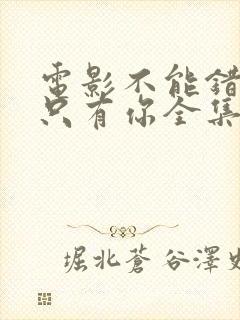 電影不能錯
只有你全集
堀北蒼谷澤